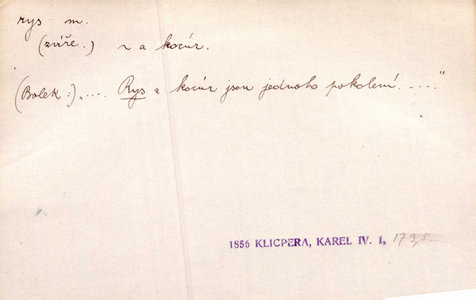 rys m.
(zvíře.) ~ a kocúr.
(Bolek:) „.... Rys a kocúr jsou jednoho pokolení. ...."
1856 KLICPERA, KAREL IV. 1, 179,8